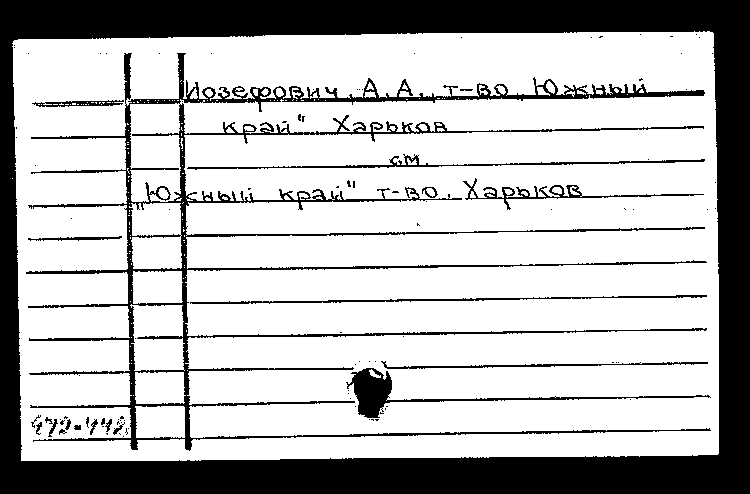 Иозефович, А.А., т-во „Южный
край" Харьков
см.
„Южный край" т-во. Харьков
472-442